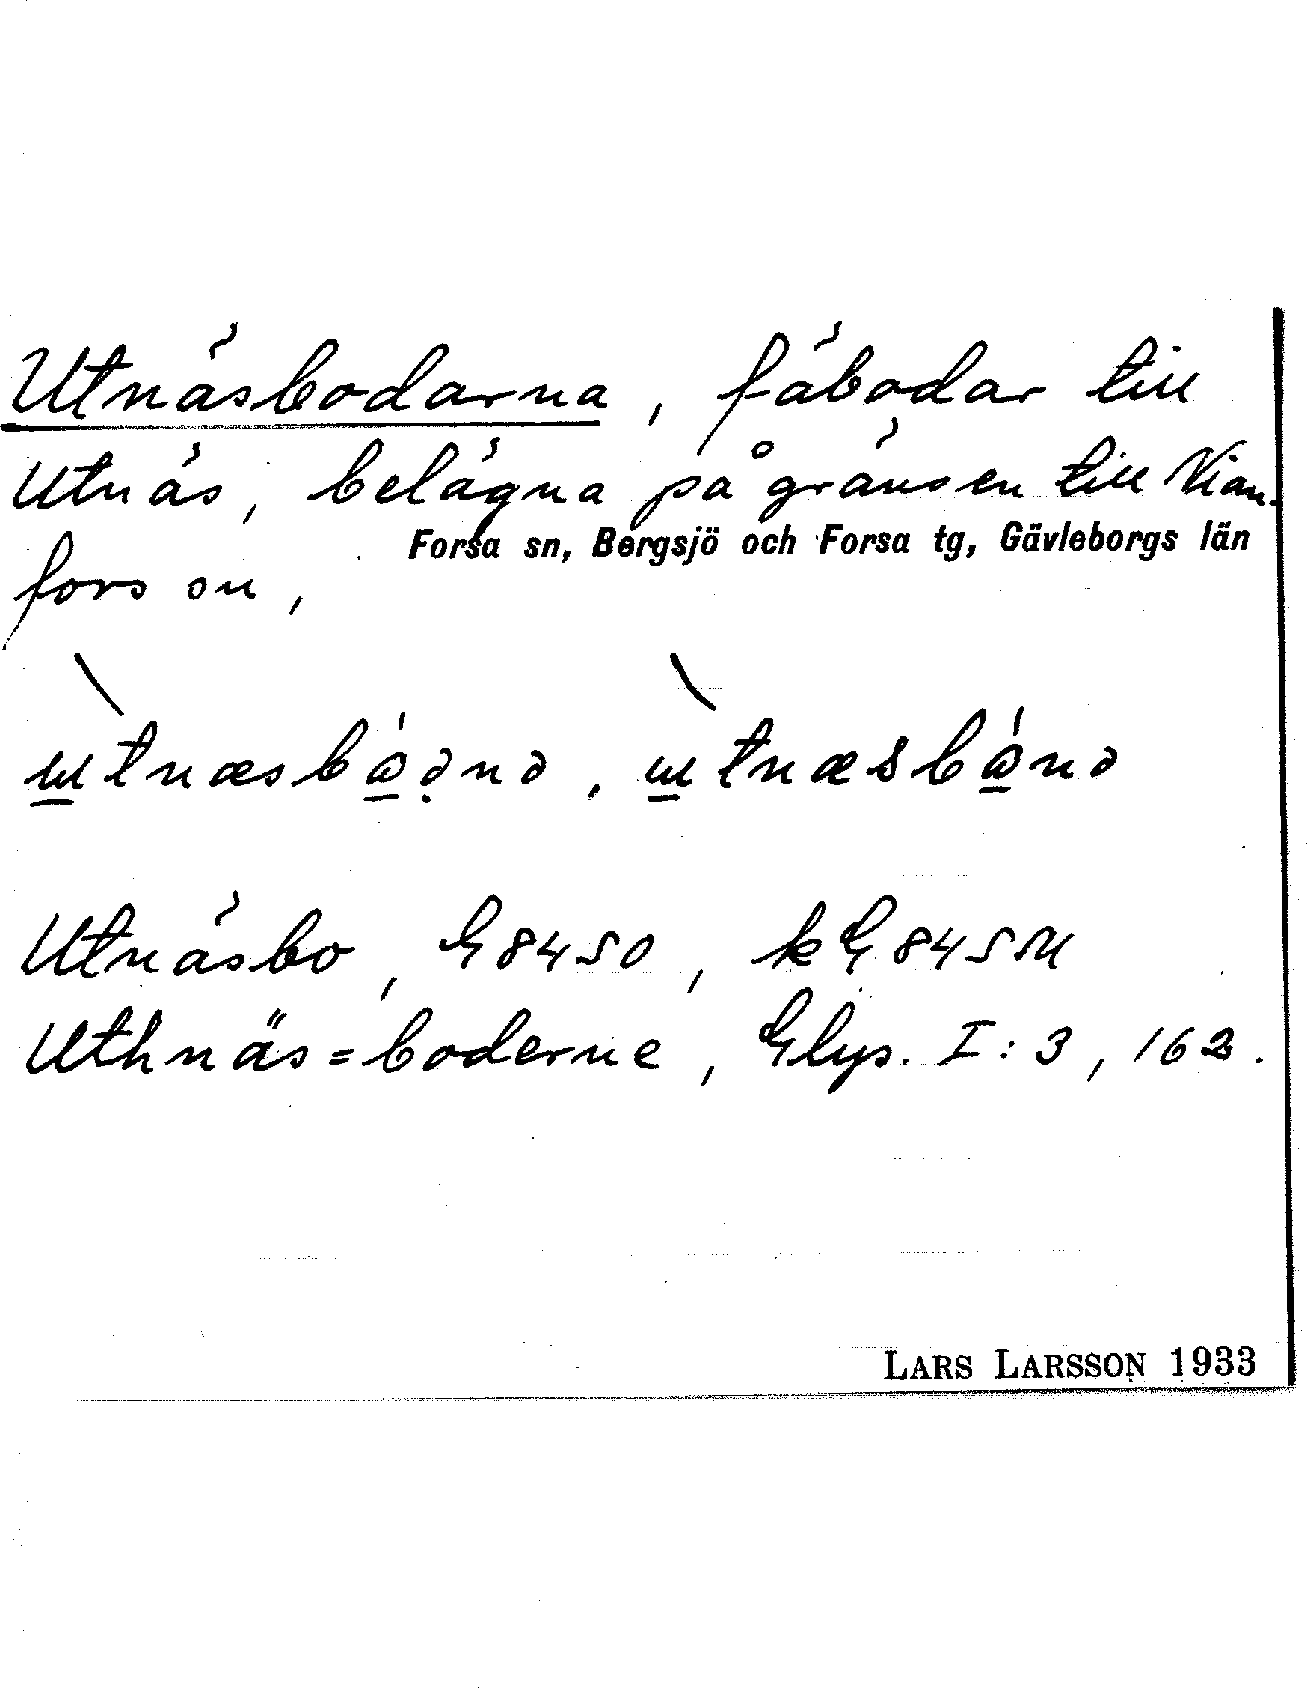 Utnäsbodarna, fäbodar till
Utnäs, belägna på gränsen till Vian-
Forsa sn, Bergsjö och Forsa tg, Gävleborgs län
fors sn,
Utnäsbo, G 84 SO, kG 84 SM
Uthnäs=boderne, Glys. I:3, 162.
LARS LARSSON 1933